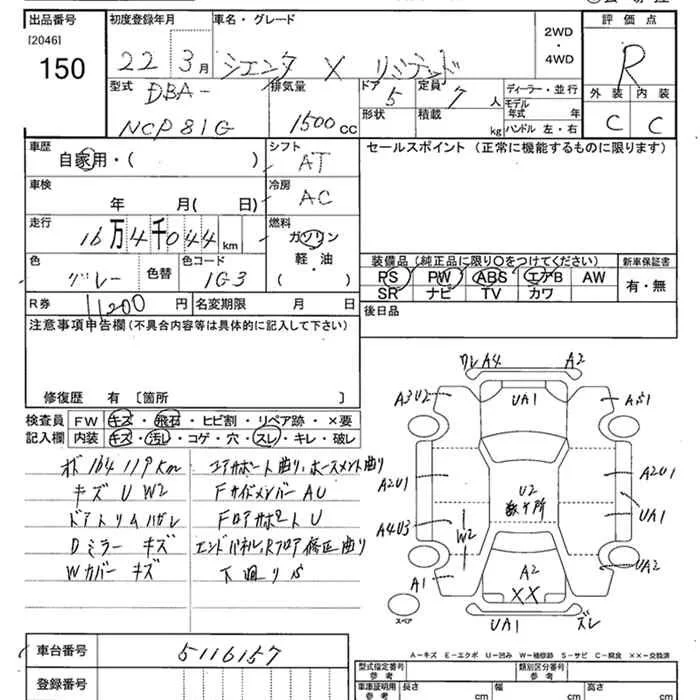 出品番号 初度登録年月 車名・グレード 2WD・4WD 評価点
[2046]
150
22 3月 シエンタ X リミテッド R
型式 排気量 ドア 定員 ディーラー・並行 外装 内装
DBA-
NCP81G 1500cc 5 7人 C C
形状 積載 kg モデル年式 年
ハンドル 左・右
車歴 シフト セールスポイント (正常に機能するものに限ります)
自家用・( ) AT
車検 冷房
年 月( 日) AC
走行 燃料
16万4千044km ガソリン
軽・油
( )
色 色替 色コード
グレー 1G3
装備品 (純正品に限り○をつけてください) 新車保証書
PS PW ABS エアB AW 有・無
SR ナビ TV カワ
R券 11200円 名変期限 月 日 後日品
注意事項申告欄(不具合内容等は具体的に記入して下さい)
修復歴 有 [箇所 ]
検査員 FW キズ・飛石・ヒビ割・リペア跡・×要
記入欄 内装 キズ・汚レ・コゲ・穴・スレ・キレ・破レ
164119km コアサポート曲り、ホースメント曲り
キズ U W2 FサイドメンバーAU
ドアトリムハガレ FロアサポートU
Dミラー キズ エンドパネル、Rフロア修正曲り
Wカバー キズ 下廻りS
ワレA4 A2
A3U2 UA1 AS1
A2U1 U2 A2U1
UA1
A4U3 W2
A1 A2 UA2
XX
スペア UA1 ズレ
A-キズ E-エクボ U-凹み W-補修跡 S-サビ C-腐食 XX-交換済
車台番号 5116157
登録番号
型式指定番号 参考 類別区分番号 参考
車庫証明用 参考 長さ cm 幅 cm 高さ cm